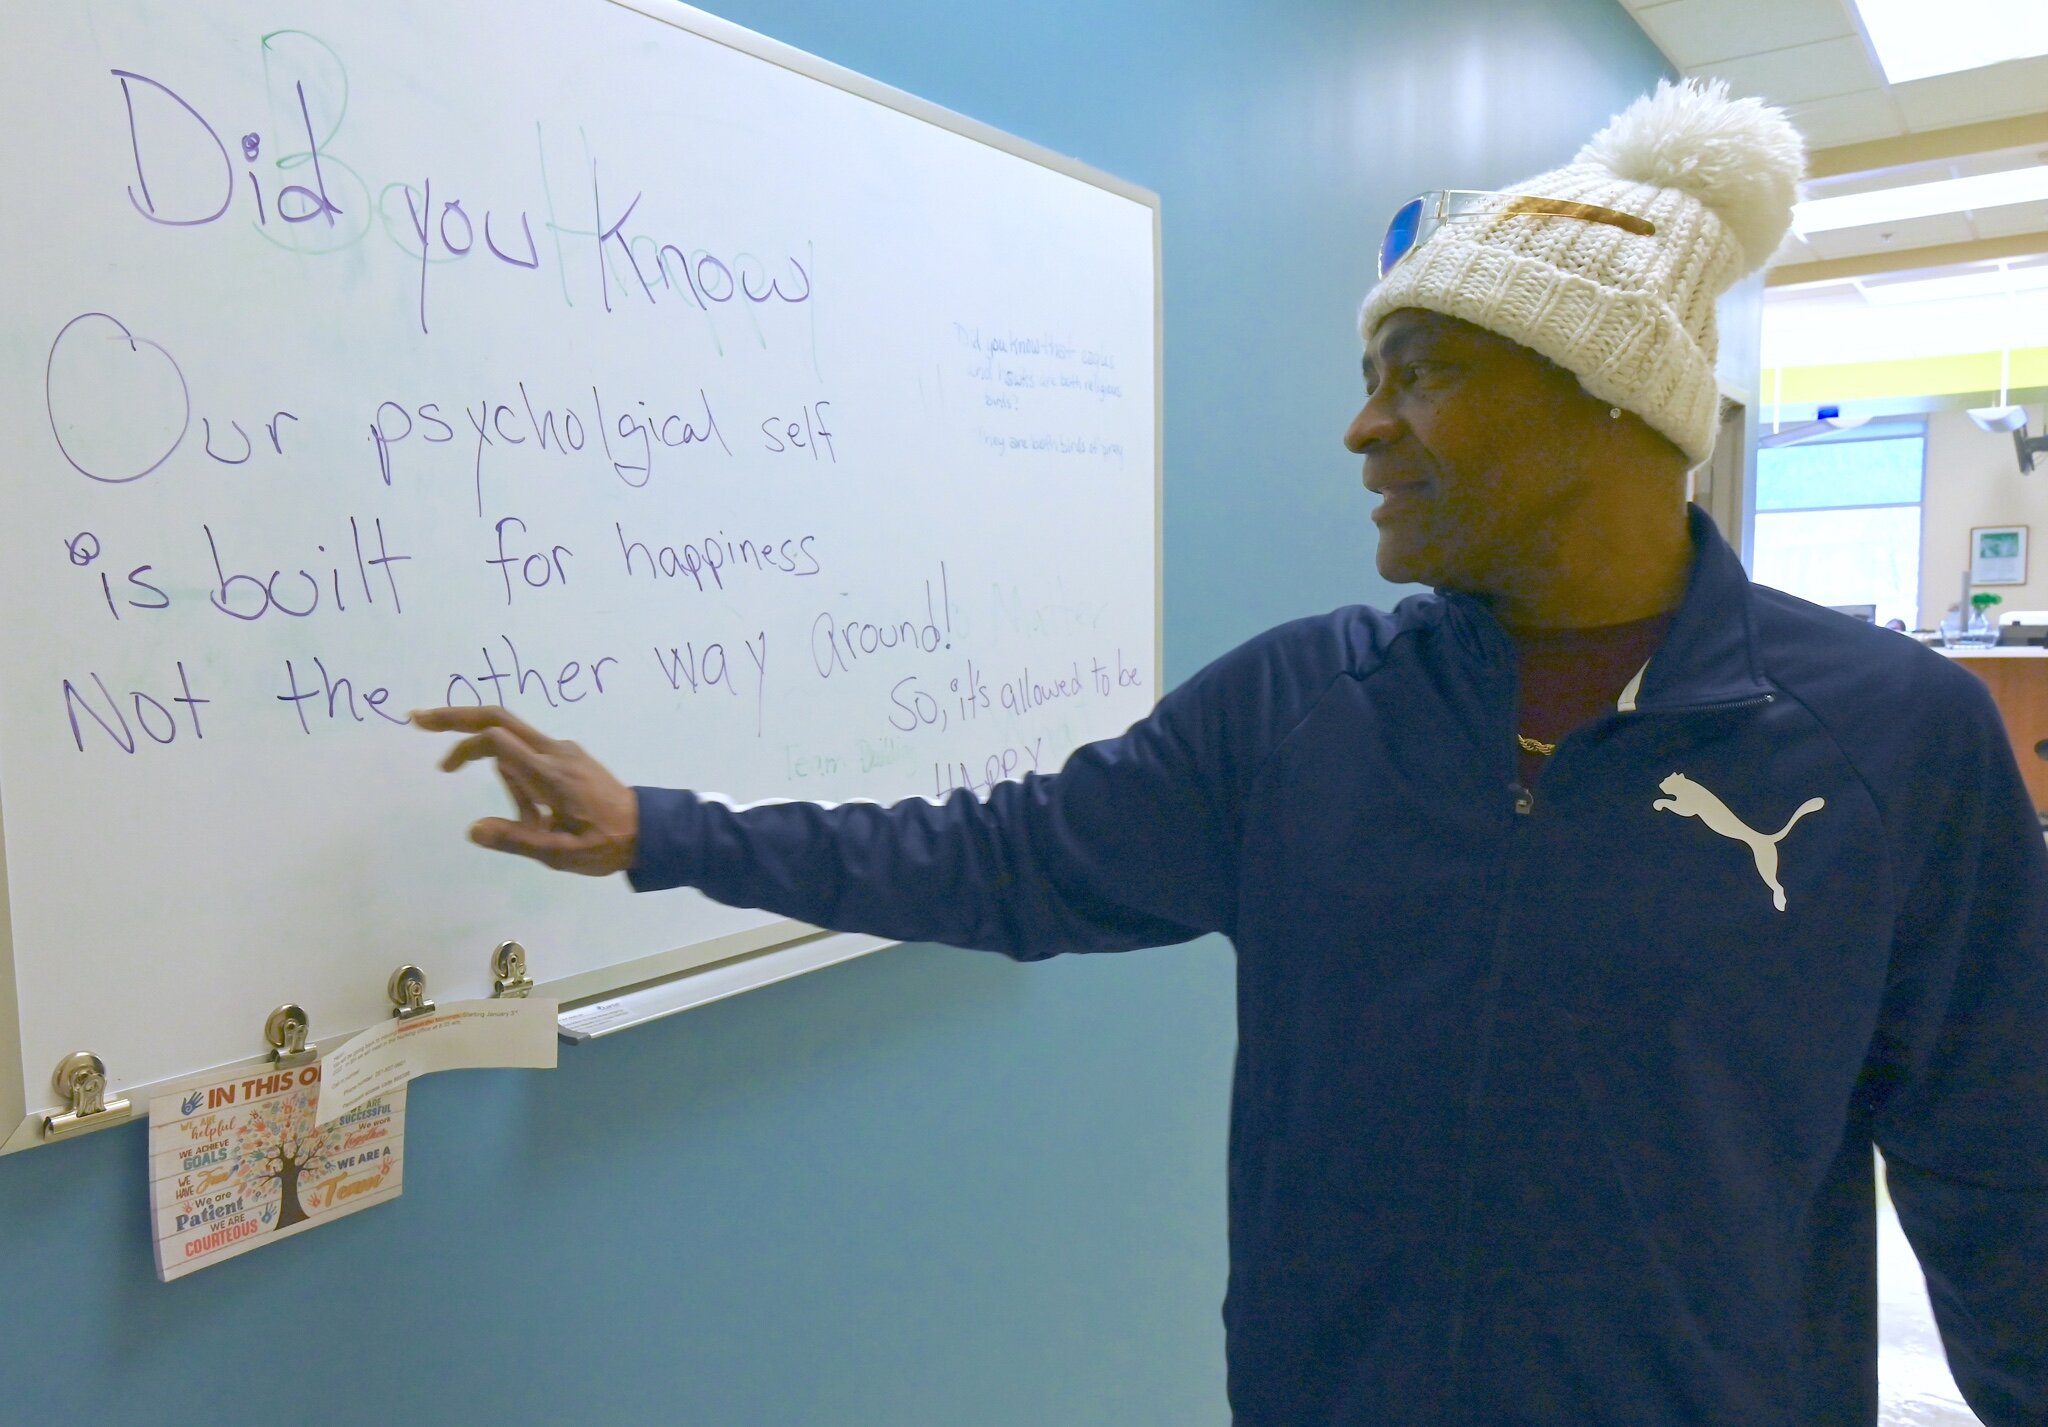 Did you Know
Our psycholgical self
is built for happiness
Not the other way around!
So, it's allowed to be
HAPPY
Be Happy
Did you know that eagles
and hawks are both religious
birds?
They are both birds of prey
Matter
Team Building
Starting January 3rd
IN THIS
WE ARE
helpful
WE ACHIEVE
GOALS
WE
HAVE Fun
We are
Patient
WE ARE
COURTEOUS
WE ARE
SUCCESSFUL
We work
Together
WE ARE A
Team